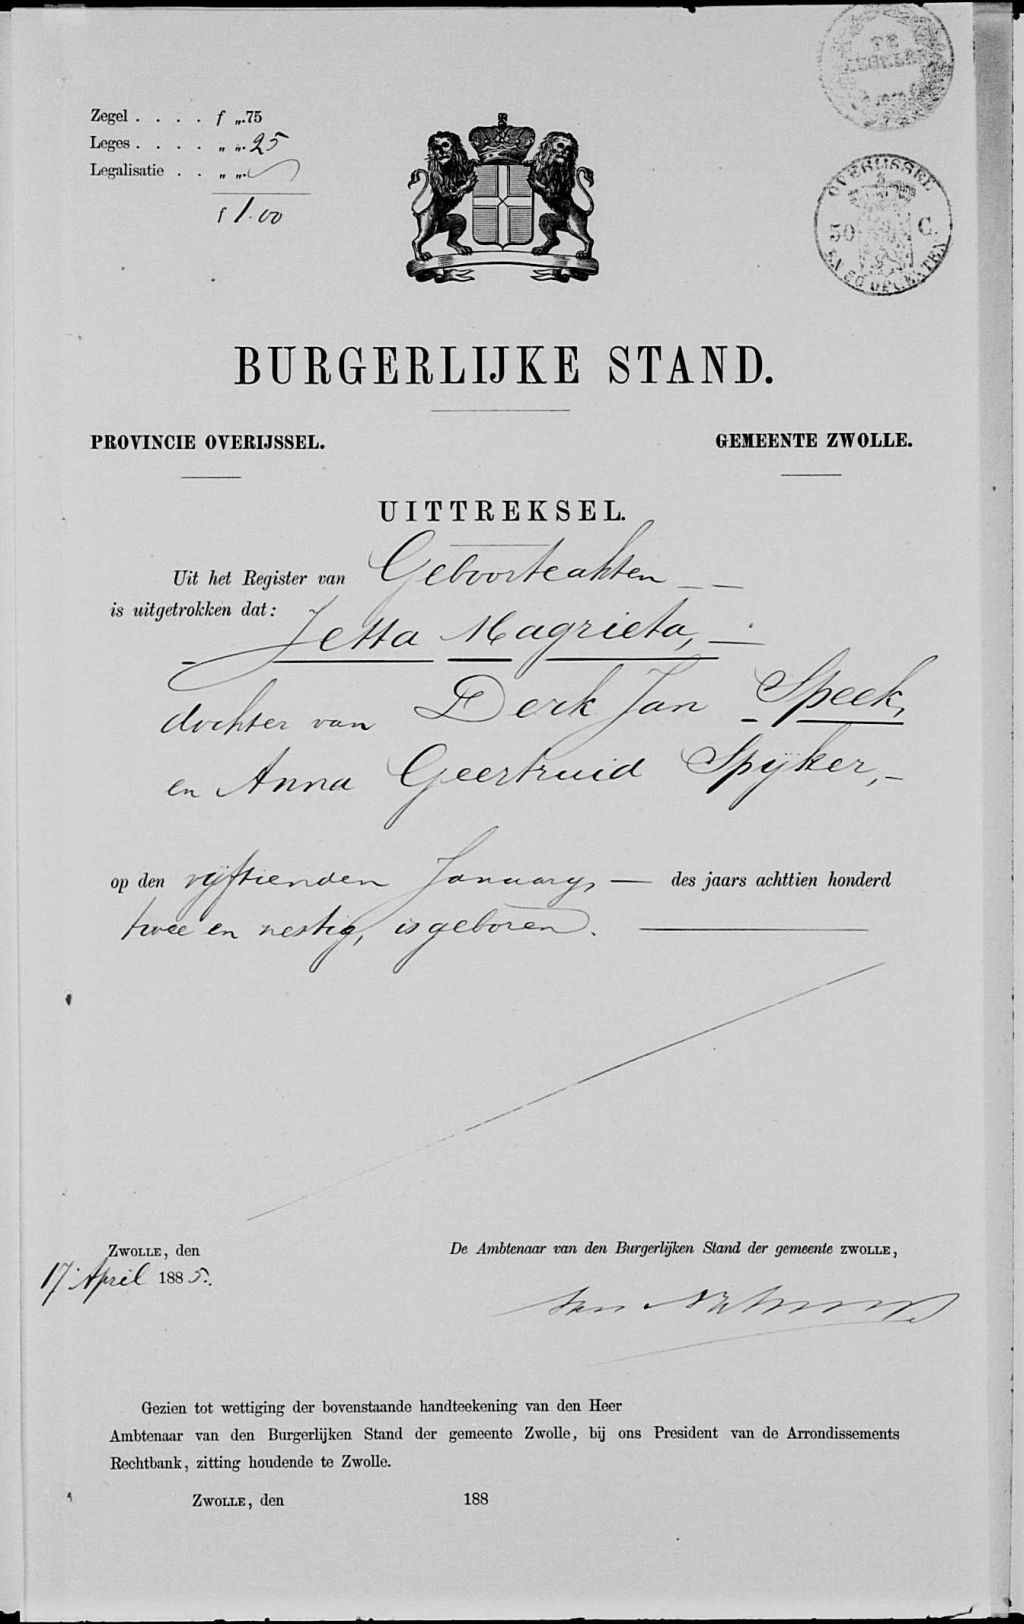 TE
Zegel . . . . f „.75
Leges . . . . „ „.25
Legalisatie . . „ „.
f 1.00
OVERIJSSEL
50 C.
EN 50 OPCENTEN
BURGERLIJKE STAND.
PROVINCIE OVERIJSSEL.
GEMEENTE ZWOLLE.
UITTREKSEL.
Uit het Register van Geboorteakten
is uitgetrokken dat:
Jetta Magrieta,
dochter van Derk Jan Speek,
en Anna Geertruid Spijker,
op den vijftienden January, des jaars achttien honderd
twee en zestig, is geboren.
ZWOLLE, den
17 April 1885.
De Ambtenaar van den Burgerlijken Stand der gemeente ZWOLLE,
Gezien tot wettiging der bovenstaande handteekening van den Heer
Ambtenaar van den Burgerlijken Stand der gemeente Zwolle, bij ons President van de Arrondissements
Rechtbank, zitting houdende te Zwolle.
ZWOLLE, den 188